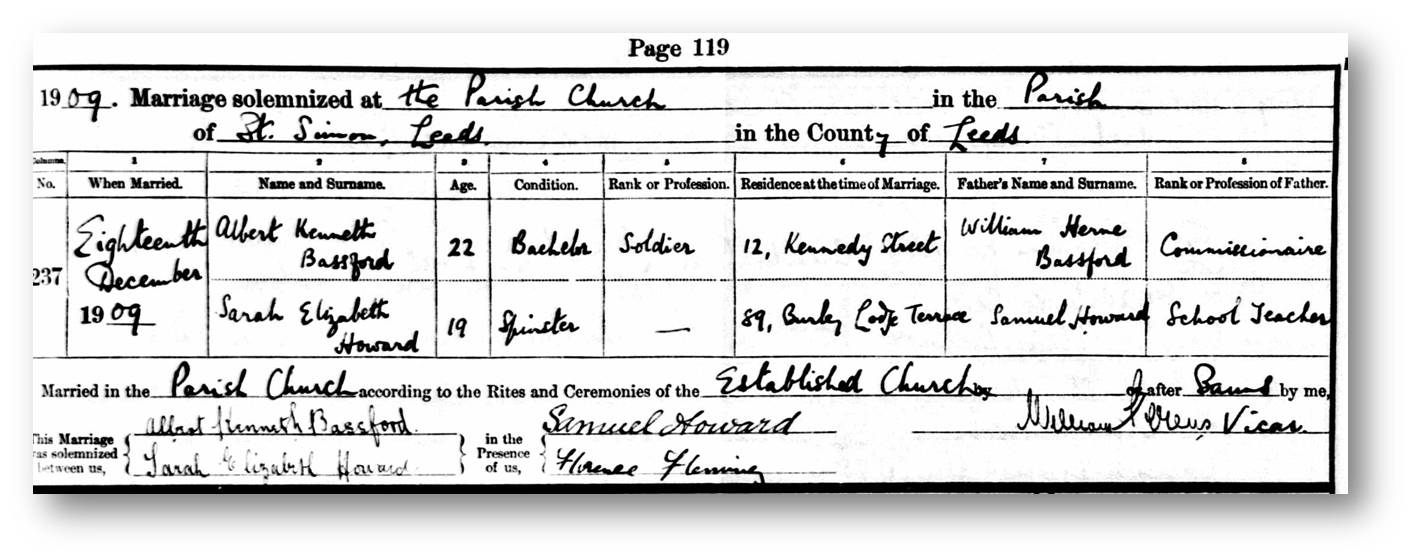 Page 119
1909. Marriage solemnized at the Parish Church in the Parish
of St. Simon, Leeds. in the County of Leeds
Columns 1 2 3 4 5 6 7 8
No. When Married. Name and Surname. Age. Condition. Rank or Profession. Residence at the time of Marriage. Father's Name and Surname. Rank or Profession of Father.
237 Eighteenth December 1909 Albert Kenneth Bassford 22 Bachelor Soldier 12, Kennedy Street William Herne Bassford Commissionaire
Sarah Elizabeth Howard 19 Spinster — 89, Burley Lodge Terrace Samuel Howard School Teacher
Married in the Parish Church according to the Rites and Ceremonies of the Established Church by or after Banns by me,
This Marriage was solemnized between us, Albert Kenneth Bassford in the Presence of us, Samuel Howard William Vicar.
Sarah Elizabeth Howard Florence Fleming